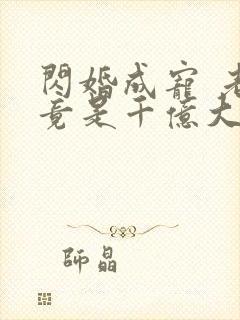 閃婚成寵 老
竟是千億大
師晶